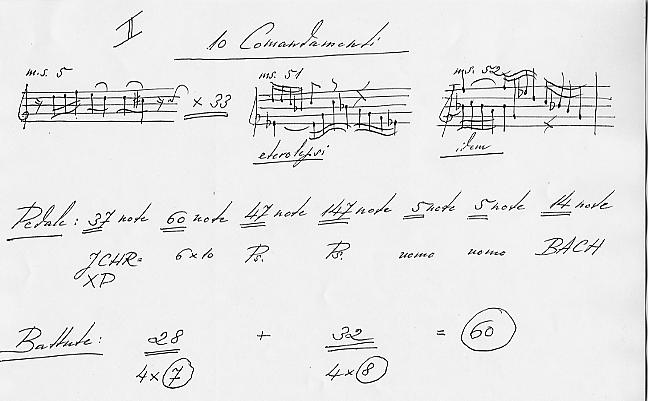 II
10 Comandamenti
m.s. 5 ms. 51 m.s. 52
× 33
eterolepsi idem
Pedale: 37 note 60 note 47 note 147 note 5 note 5 note 14 note
JCHR= 6×10 Ps. Ps. uomo uomo BACH
XP
Battute: 28 + 32 = 60
4×7 4×8